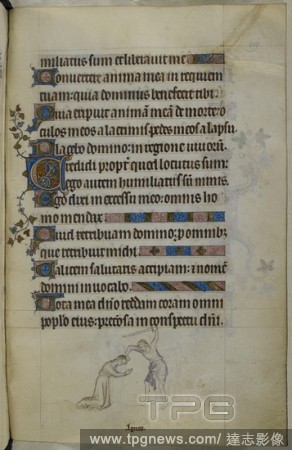 miliatus sum et liberavit me
Convertere anima mea in requiem
tuam: quia dominus benefecit tibi
Quia eripuit animā meā de morte: o
culos meos a lacrimis pedes meos a lapsu
Placebo domino: in regione vivorū.
Credidi propt̄ quod locutus sum:
ego autem humiliatus sū nimis.
Ego dixi in excessu meo: omnis ho
mo mendax.
Quid retribuam domino: p̄ omnibȝ
que retribuit michi
Calicem salutaris accipiam: ⁊ nomē
domini invocabo.
Vota mea dn̄o reddam coram omni
pop̄lo eius: preciosa in conspectu dn̄i.
TPG
www.tpgnews.com / 達志影像